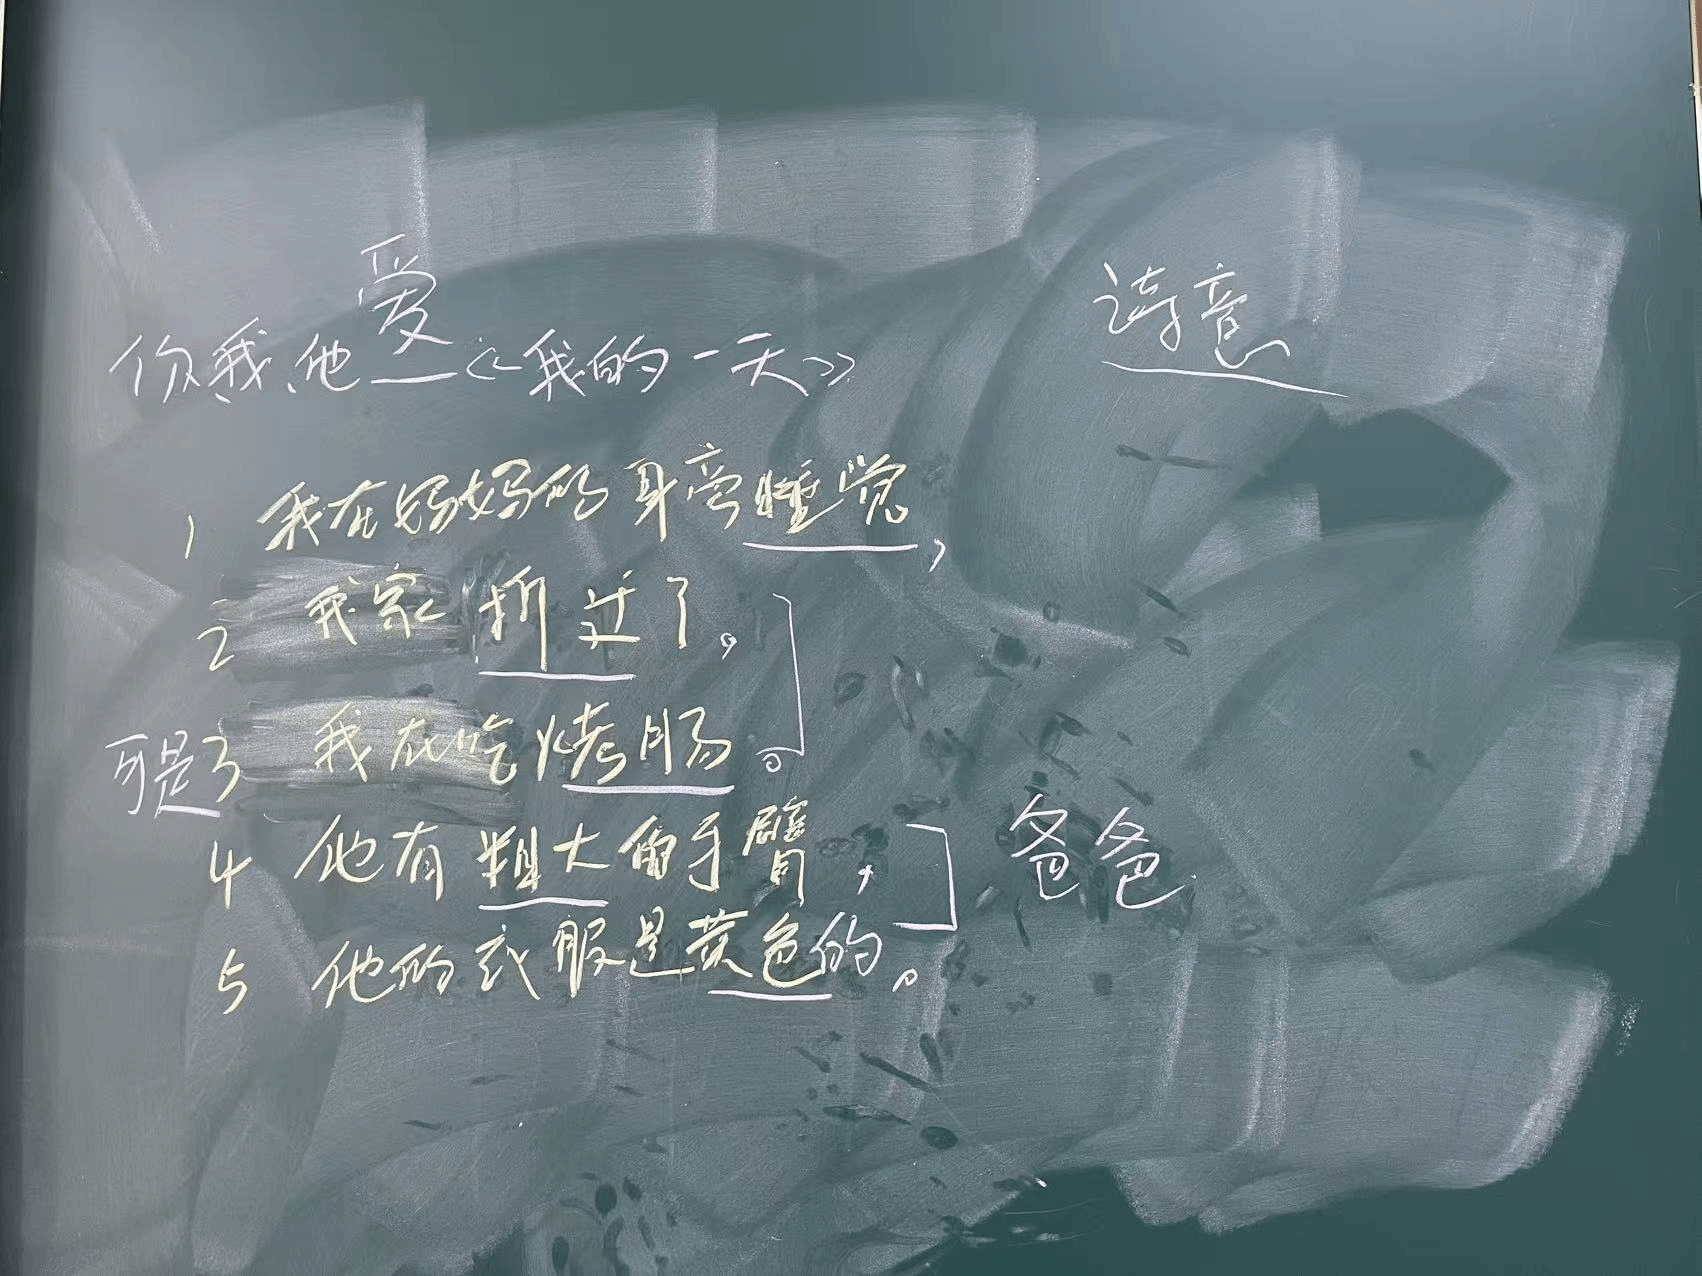 爱
你、我、他__《我的一天》
诗意
1 我在妈妈的身旁睡觉,
2 我家拆迁了。
可是3 我在吃烤肠。
4 他有粗大的手臂,
爸爸
5 他的衣服是黄色的。